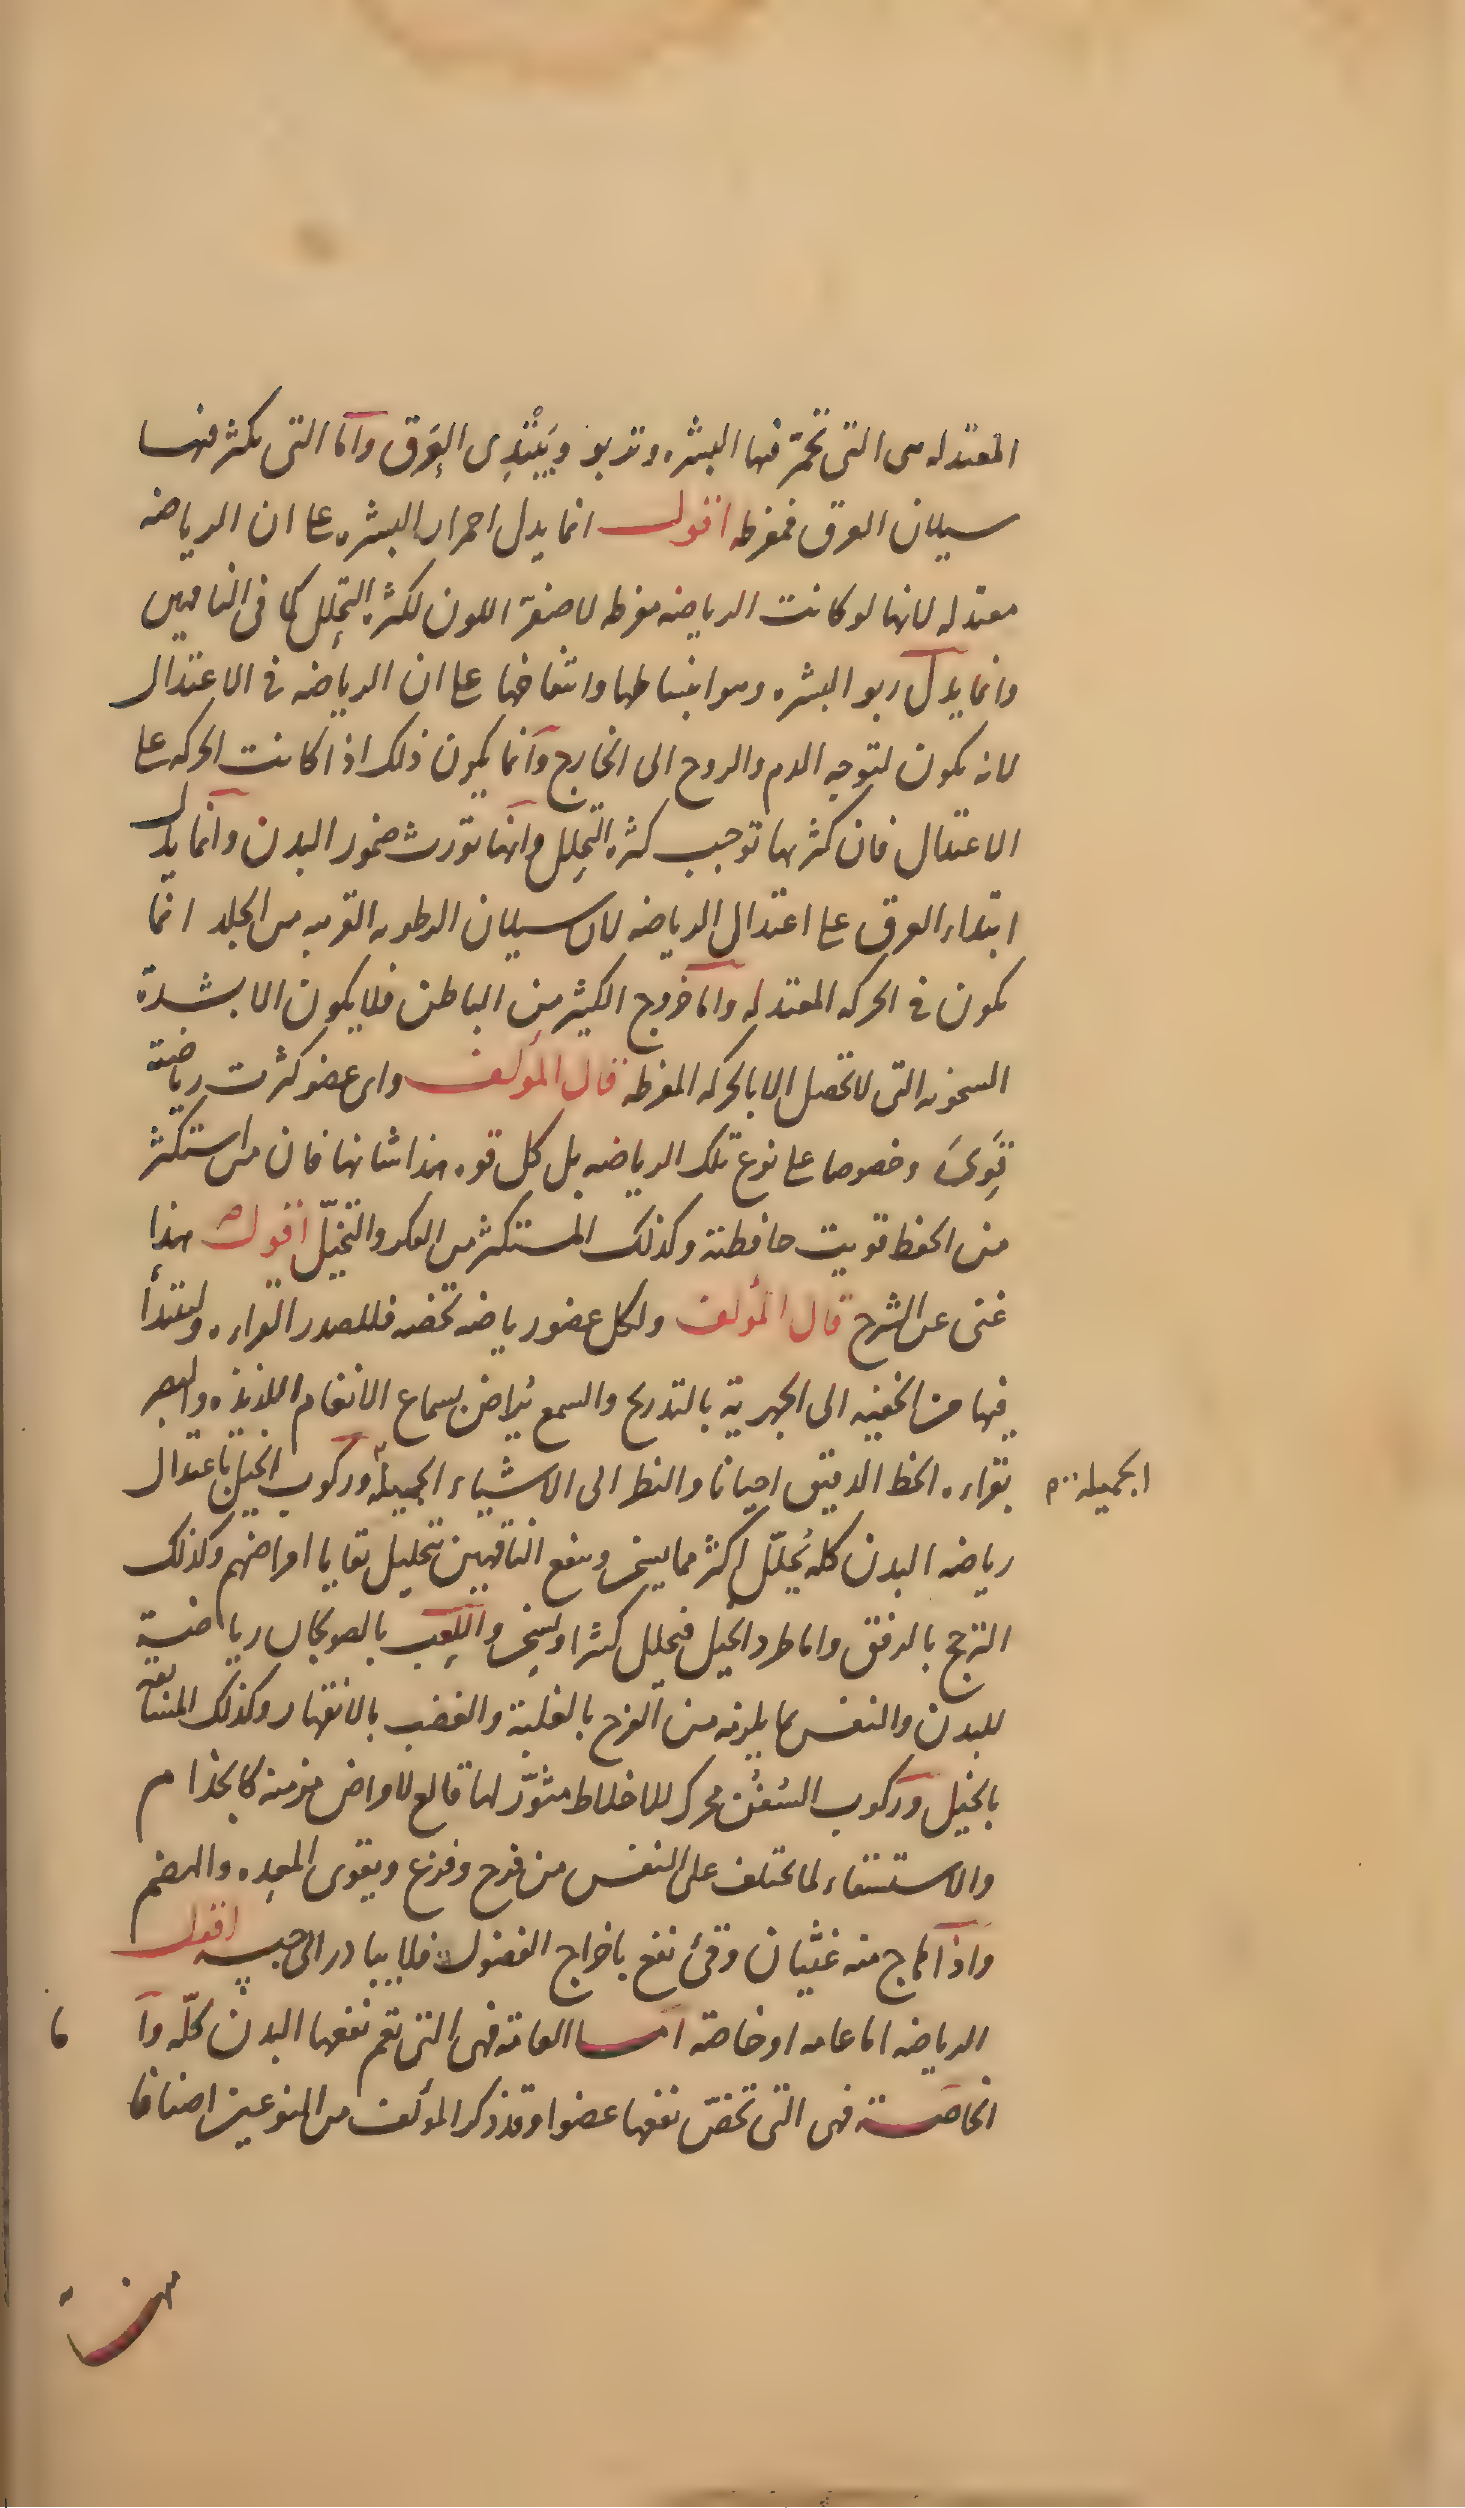 المعتدله هى التى تحمرّ فيها البشره وتربو ويَبْتَدِى العَرَق وامّا التى يكثر فيها
سيلان العرق فمفرطه اقول انما يدل احمرار البشره على ان الرياضه
معتدله لانها لو كانت الرياضه مفرطه لاصفرّ اللون لكثره التحلّل كما فى الناقهين
وانما يدل ربو البشره وهو انبساطها وانتفاخها على ان الرياضه فى الاعتدال
لانه يكون لتوجه الدم والروح الى الخارج وانما يكون ذلك اذا كانت الحركه على
الاعتدال فان كثرتها توجب كثره التحلل وانها تورث ضمور البدن وانما يدل
ابتداء العرق على اعتدال الرياضه لان سيلان الرطوبه القريبه من الجلد انمّا
يكون فى الحركه المعتدله وامّا خروج الكثير من الباطن فلا يكون الا بشدة
السخونه التى لا تحصل الا بالحركه المفرطه قال المؤلف واى عضو كثرت رياضته
قَوِىَ وخصوصا على نوع تلك الرياضه بل كل قوه هذا شانها فان من استكثر
من الحفظ قويت حافظته وكذلك المستكثر من الفكر والتخيّل اقول هذا
غنى عن الشرح قال المؤلف ولكل عضو رياضه تخصه فللصدر القراءه وليبتدأ
فيها من الخفيه الى الجهرية بالتدريج والسمع يُراض بسماع الانغام اللذيذه والبصر
بقراءه الخط الدقيق احيانا والنظر الى الاشياء الجميلة وركوب الخيل باعتدال
الجميله
رياضه البدن كله يُحلّل اكثر مما يسخن وينفع الناقهين بتحليل بقايا امراضهم وكذلك
الترجح بالرفق واما طرد الخيل فيحلل كثيرا ويسخن واللَعِب بالصولجان رياضة
للبدن والنفس بما يلزمه من الفرح بالغلبة والغضب بالانقهار وكذلك المسابقة
بالخيل وركوب السُفُن محرك للاخلاط مثوّر لها قالع لامراض مزمنه كالجذام
والاستسقاء لما يختلف على النفس من فرح وفزع ويقوى المعده والهضم
واذا هاج منه غثيان وقئ نفع باخراج الفضول فلا يبادر الى حبسه اقول
الرياضه اما عامه او خاصّة امّا العامّة فهى التى تعم نفعها البدن كلّه وامّا
الخاصّة فهى التى تخصّ نفعها عضوا وقد ذكر المؤلف من النوعين اصنافا